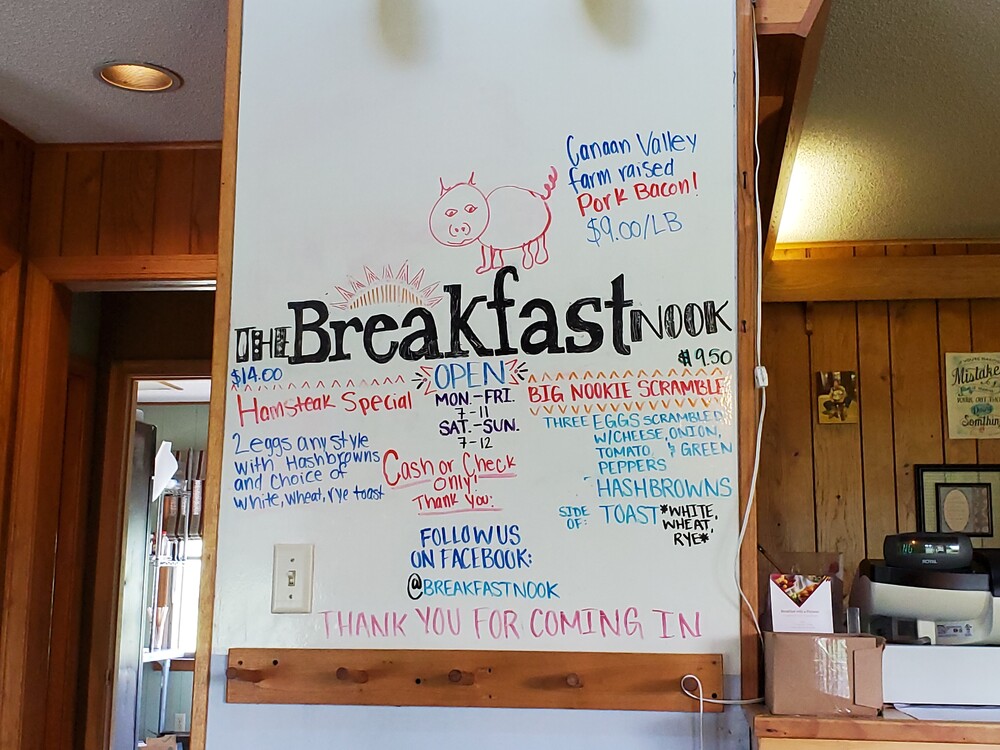 Canaan Valley
farm raised
Pork Bacon!
$9.00/LB
THE Breakfast NOOK
$14.00
Hamsteak Special
2 eggs any style
with Hashbrowns
and choice of
white, wheat, rye toast
OPEN
MON.-FRI.
7-11
SAT.-SUN.
7-12
Cash or Check
only!
Thank You:
FOLLOW US
ON FACEBOOK:
@BREAKFASTNOOK
$9.50
BIG NOOKIE SCRAMBLE
THREE EGGS SCRAMBLED
W/CHEESE, ONION,
TOMATO, & GREEN
PEPPERS
HASHBROWNS
SIDE OF: TOAST *WHITE,
WHEAT,
RYE*
THANK YOU FOR COMING IN
Mistake
ROYAL